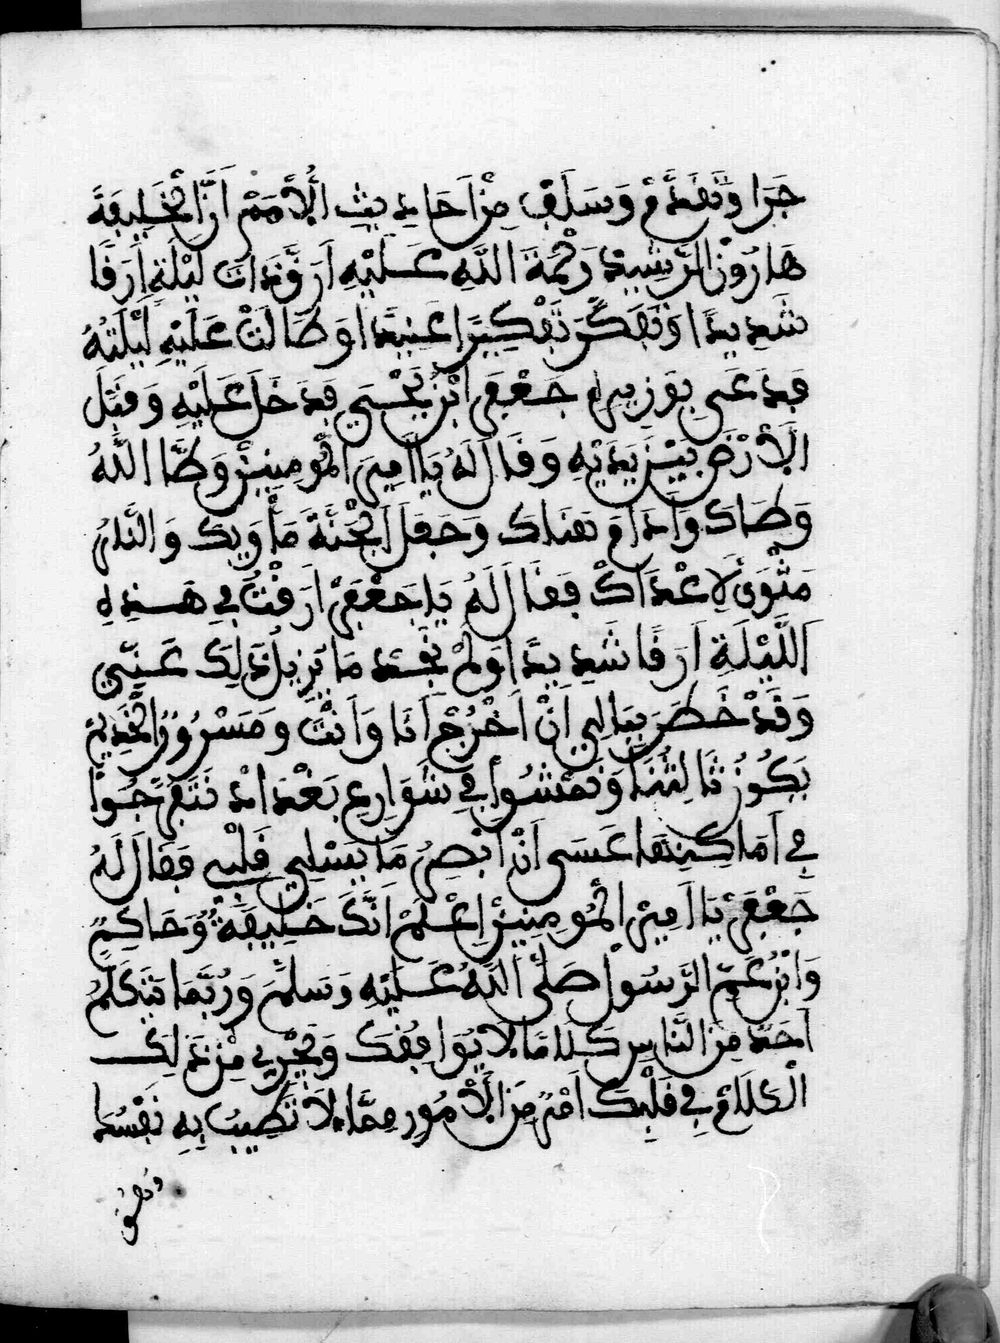 جَرَا وَتَقَدَّمَ وَسَلَفَ مِنْ اَحَادِيثِ الْأُمَمْ اَنَّ الْخَلِيفَةَ
هَارُونْ الرَّشِيدْ رَحْمَةُ اللَّهِ عَلَيْهِ اَرَقَ ذَاتَ لَيْلَةٍ اَرَقًا
شَدِيدًا وَتَفَكَّرَ تَفْكِيرًا عَنِيدًا وَطَالَتْ عَلَيْهِ لَيْلَتُهُ
فَدَعَى بِوَزِيرِهِ جَعْفَرِ ابْنُ يَحْيَى فَدَخَلَ عَلَيْهِ وَقَبَّلَ
الْأَرْضَ بَيْنَ يَدَيْهِ وَقَالَ لَهُ يَا اَمِيرَ الْمُومِنِينَ وَطَّا اللَّهُ
وَطَاكَ وَاَدَامَ بَقَاكَ وَجَعَلَ الْجَنَّةَ مَأْوِيكَ وَالنَّارُ
مَثْوَى لِاَعْدَاكَ فَقَالَ لَهُ يَا جَعْفَرْ اَرَقْتُ فِي هَذِهِ
اللَّيْلَةِ اَرَقًا شَدِيدًا وَلَمْ نَجِدْ مَا يَزِيلُ ذَلِكَ عَنِّي
وَقَدْ خَطَرَ بِبَالِي اَنْ اَخْرُجَ اَنَا وَاَنْتَ وَمَسْرُورُ الْخَدِيمْ
يَكُونُ ثَالِثُنَا وَنَمْشُوا فِي شَوَارِعِ بَغْدَادْ نَتَفَرَّجُوا
فِي اَمَاكِنِهَا عَسَى اَنْ اَبْصِرُ مَا يَسْلِي قَلْبِي فَقَالَ لَهُ
جَعْفَرْ يَا اَمِيرَ الْمُومِنِينْ اِعْلَمْ اَنَّكَ خَلِيفَةٌ وَحَاكِمٌ
وَابْنُ عَمِّ الرَّسُولْ صَلَّى اللَّهُ عَلَيْهِ وَسَلَّمَ وَرُبَّمَا يَتَكَلَّمُ
اَحَدٌ مِنَ النَّاسِ كَلَامًا لَا يُوَافِقُكَ وَيَجْرِي مِنْ ذَلِكَ
الْكَلَامْ فِي قَلْبِكَ اَمْرٌ مِنَ الْأُمُورِ مِمَّا لَا تَطِيبُ بِهِ نَفْسُكَ